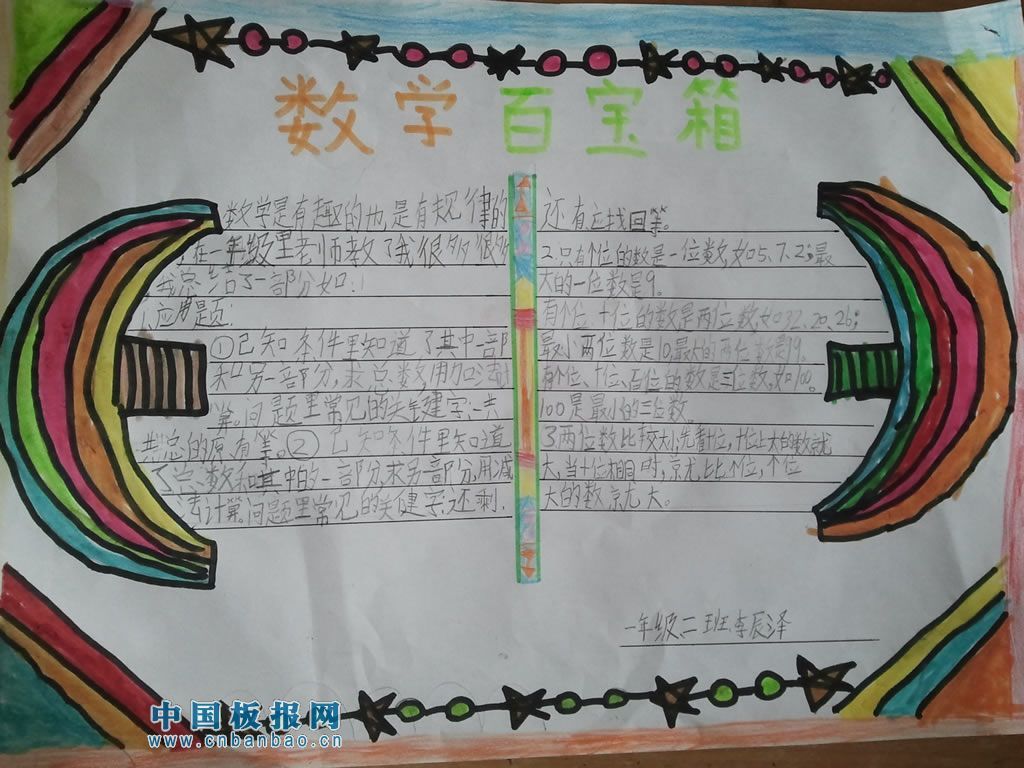 数学百宝箱
数学是有趣的也是有规律的
在一年级里老师教了我很多很多
我总结了一部分如:
1、应用题:
①已知条件里知道了其中一部
和另一部分,求总数,用加法计
算。问题里常见的关键字:一共
共总的原有等。②已知条件里知道
了总数和其中的一部分求另部分,用减
去计算。问题里常见的关健字:还剩.
还有应找回等。
2.只有个位的数是一位数,如5、7、2;最
大的一位数是9。
有个位、十位的数是两位数,如32、20、26;
最小两位数是10,最大的两位数是99。
有个位、十位、百位的数是三位数,如100。
100是最小的三位数。
3.两位数比较大小,先看十位,十位上大的数就
大,当十位相同时,京尤比个位,个位
大的数就大。
一年级二班李辰泽
中国板报网
www.cnbanbao.cn